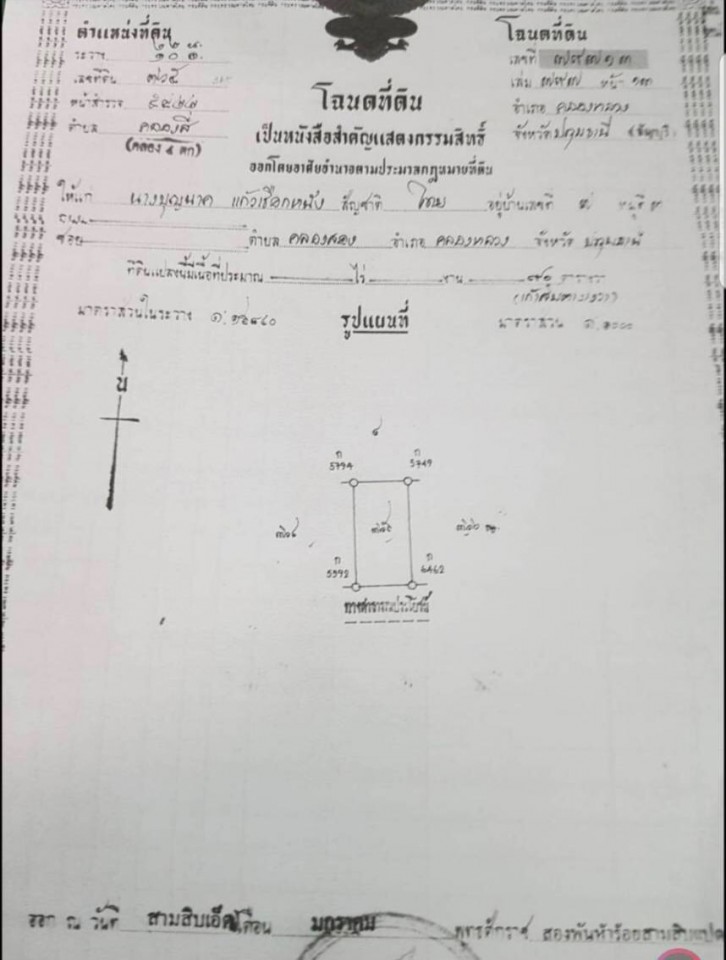 ตำแหน่งที่ดิน
ระวาง
เลขที่ดิน ๗๖๕
หน้าสำรวจ
ตำบล คลองสี่
(คลอง ๔ ตก)
โฉนดที่ดิน
เลขที่
เล่ม ๗๙๗ หน้า ๑๓
อำเภอ คลองหลวง
จังหวัด ปทุมธานี
โฉนดที่ดิน
เป็นหนังสือสำคัญแสดงกรรมสิทธิ์
ออกโดยอาศัยอำนาจตามประมวลกฎหมายที่ดิน
ให้แก่ นางบุญนาค สัญชาติ ไทย อยู่บ้านเลขที่ หมู่ที่
ถนน
ซอย ตำบล คลองสอง อำเภอ คลองหลวง จังหวัด ปทุมธานี
ที่ดินแปลงนี้มีเนื้อที่ประมาณ ไร่ งาน ๙๐ ตารางวา
(เก้าสิบตารางวา)
มาตราส่วนในระวาง รูปแผนที่ มาตราส่วน ๑:๑๐๐๐
น
๘
ก ก
5794 5749
๗๖๕
ก ก
5592 6462
ทางสาธารณประโยชน์
ออก ณ วันที่ สามสิบเอ็ด เดือน มกราคม พุทธศักราช สองพันห้าร้อยสามสิบแปด